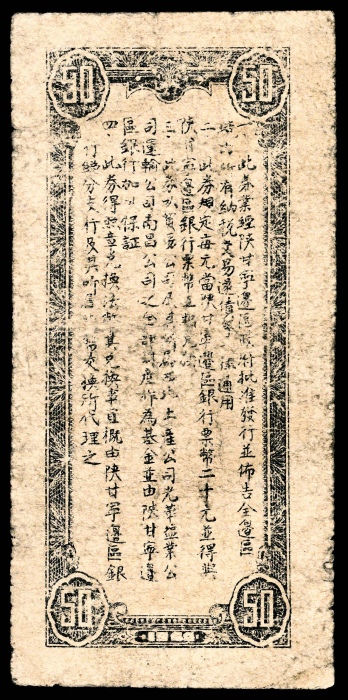 50 50
一、此券業經陝甘寧邊區政府批准發行並佈告全邊區
有納稅交易還債等 通用
二、此券規定每元當陝甘寧邊區銀行票幣二十元並得與
陝甘寧邊區銀行票幣
三、此券以 公司 土產公司光華鹽業公
司運輸公司南昌公司之全部財產作為基金並由陝甘寧邊
區銀行加以保証
四、此券得照章兌換法幣其兌換事宜概由陝甘寧邊區銀
行 分行及其所 交換所代理之
50 50